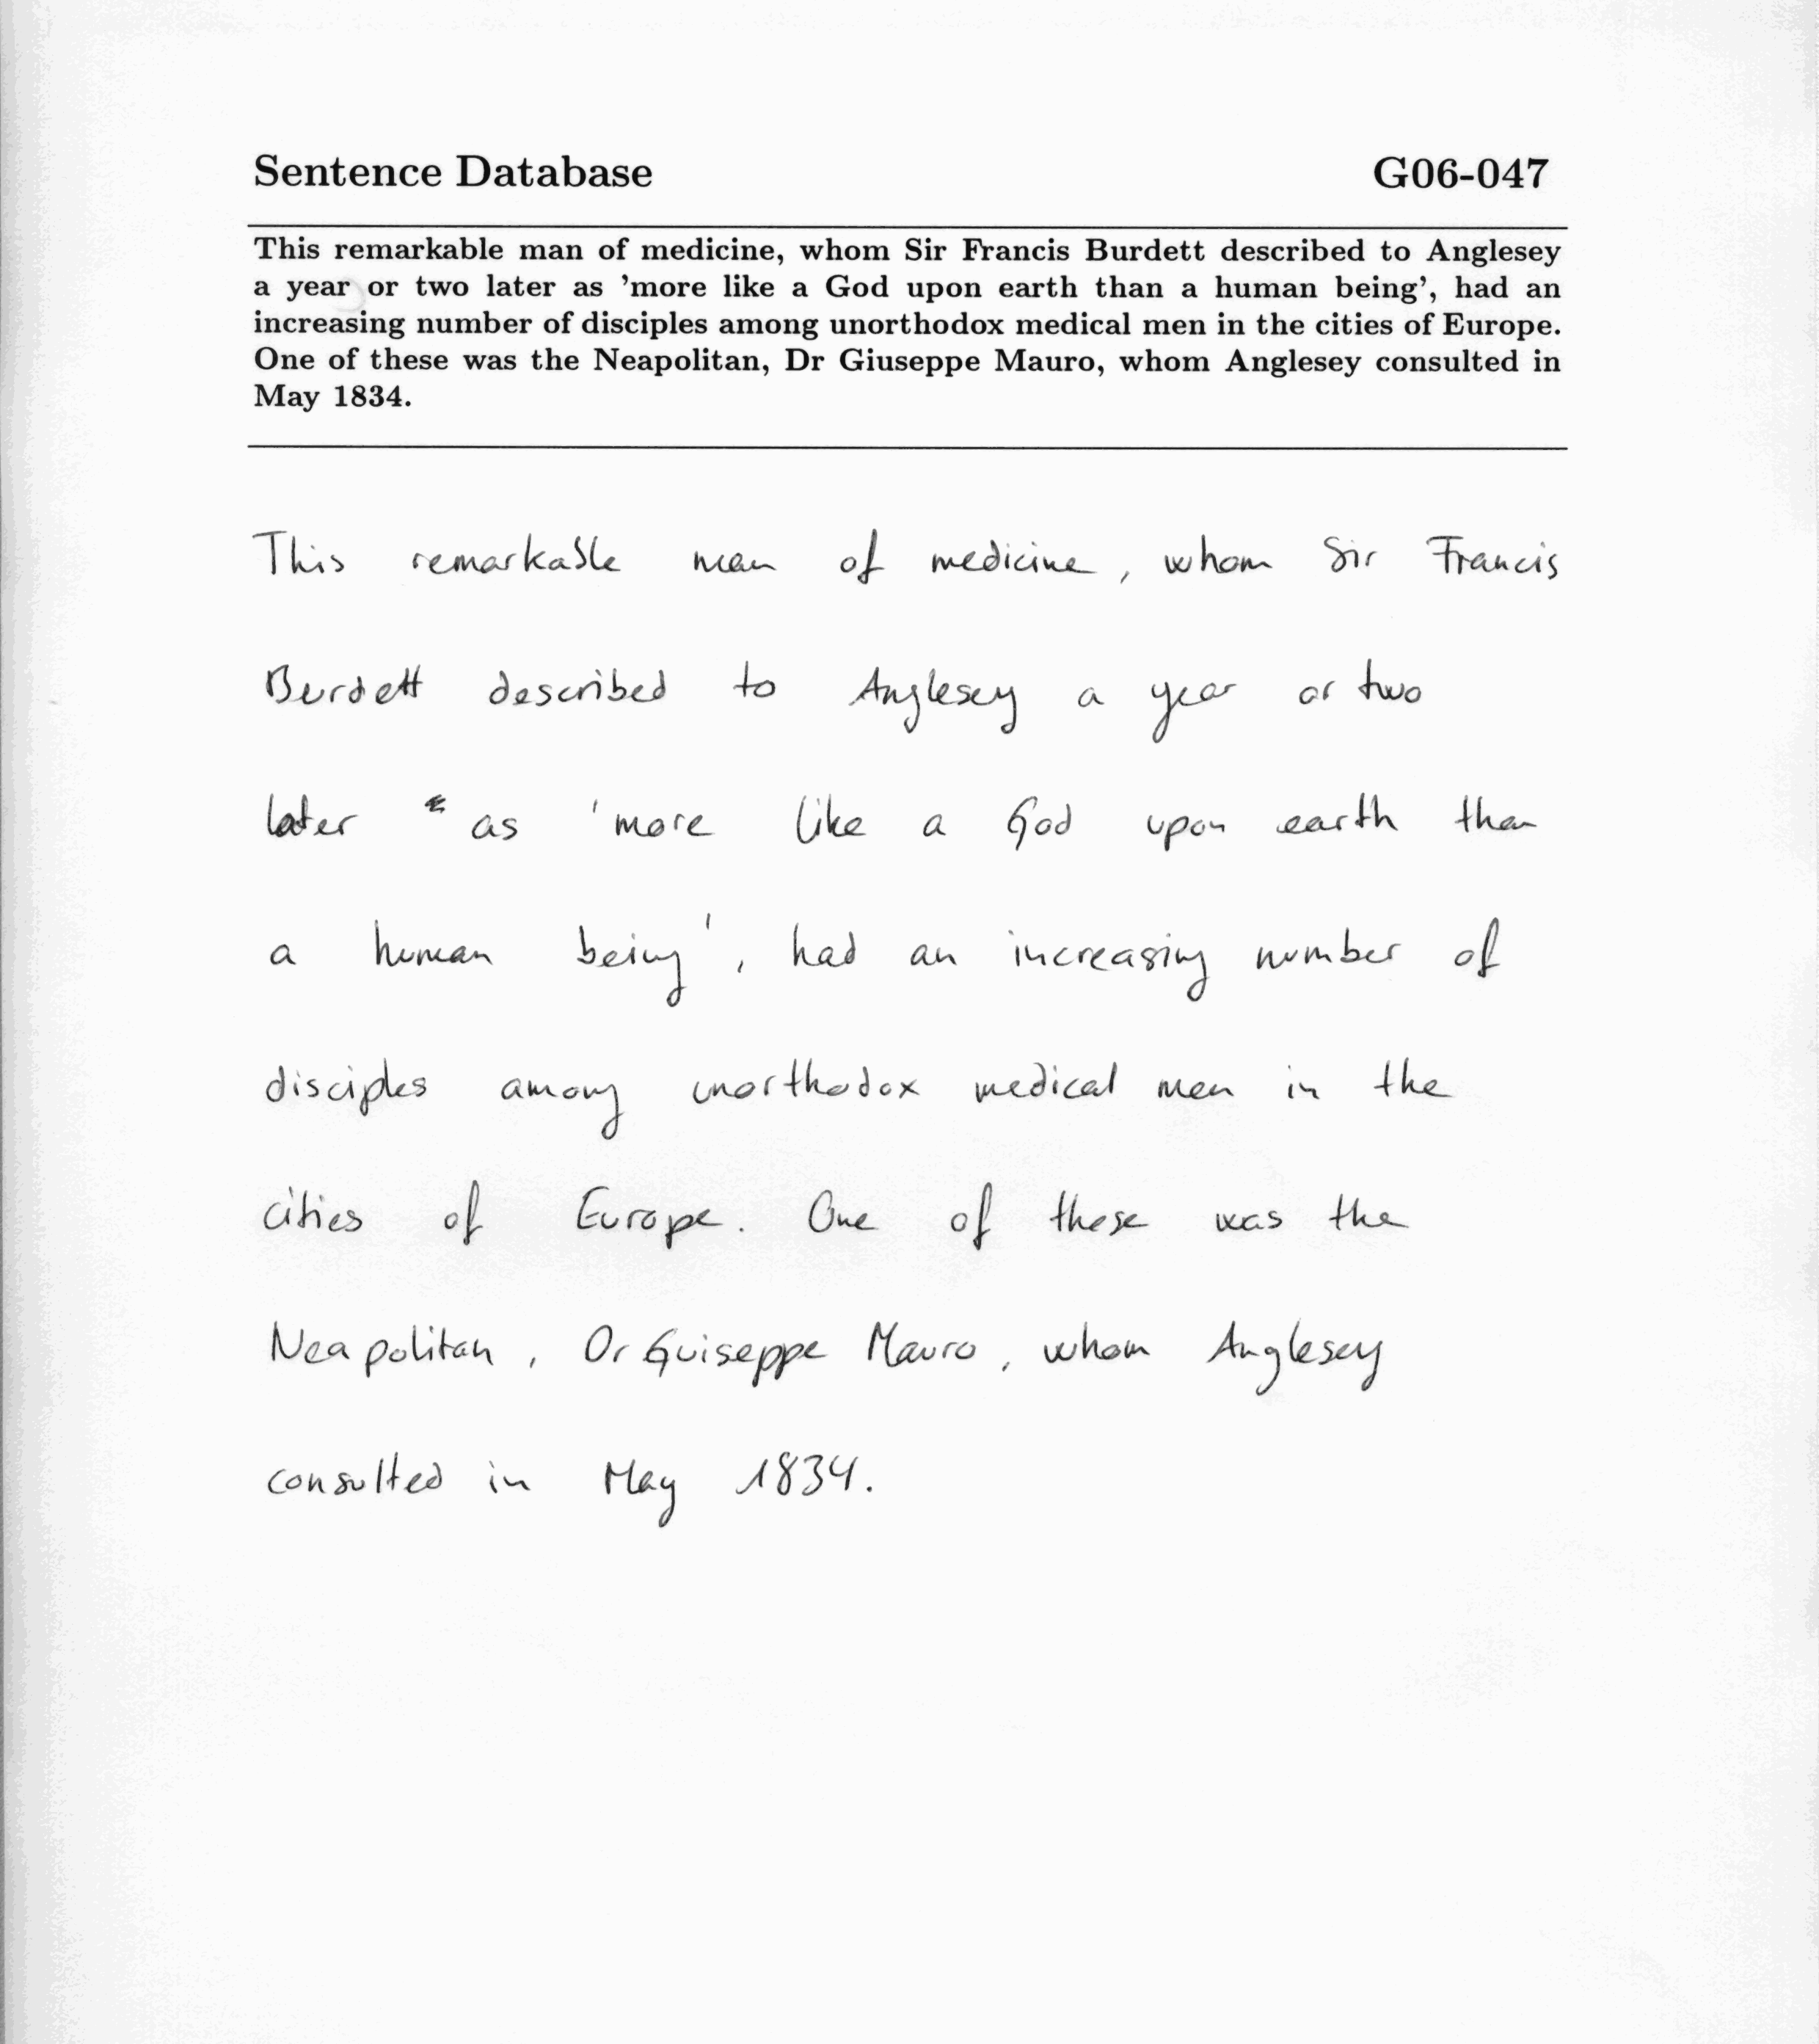 Sentence Database G06-047
This remarkable man of medicine, whom Sir Francis Burdett described to Anglesey
a year or two later as 'more like a God upon earth than a human being', had an
increasing number of disciples among unorthodox medical men in the cities of Europe.
One of these was the Neapolitan, Dr Giuseppe Mauro, whom Anglesey consulted in
May 1834.
This remarkable man of medicine, whom Sir Francis
Burdett described to Anglesey a year or two
later as 'more like a God upon earth than
a human being', had an increasing number of
disciples among unorthodox medical men in the
cities of Europe. One of these was the
Neapolitan, Dr Guiseppe Mauro, whom Anglesey
consulted in May 1834.